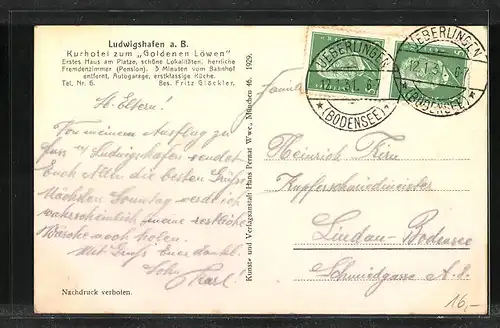 Ludwigshafen a. B.
Kurhotel zum „Goldenen Löwen"
Erstes Haus am Platze, schöne Lokalitäten, herrliche
Fremdenzimmer (Pension). 3 Minuten vom Bahnhof
entfernt, Autogarage, erstklassige Küche.
Tel. Nr. 6. Bes. Fritz Glöckler.
Lb. Eltern!
Von meinem Ausflug zu
Fuss Ludwigshafen sendet
Euch Allen die besten Grüße
Nächsten Sonntag werde ich
wahrscheinlich meine restliche
Wäsche noch holen.
Mit Gruß Euer dankb.
Sohn
Karl!
Nachdruck verboten.
Kunst- und Verlagsanstalt Hans Pernat Wwe., München 46. 1929.
UEBERLINGEN
*(BODENSEE)*
UEBERLINGEN
*(BODENSEE)*
Familie
Heinrich
Kupferschmiedmeister
Lindau-Bodensee
Schmiedgasse A.
16,-